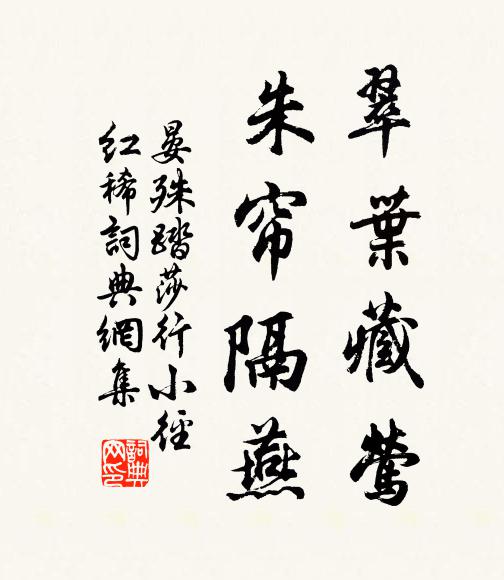 翠葉藏鶯
朱帘隔燕
晏殊踏莎行小徑
紅稀詞典網集
詞典
网印